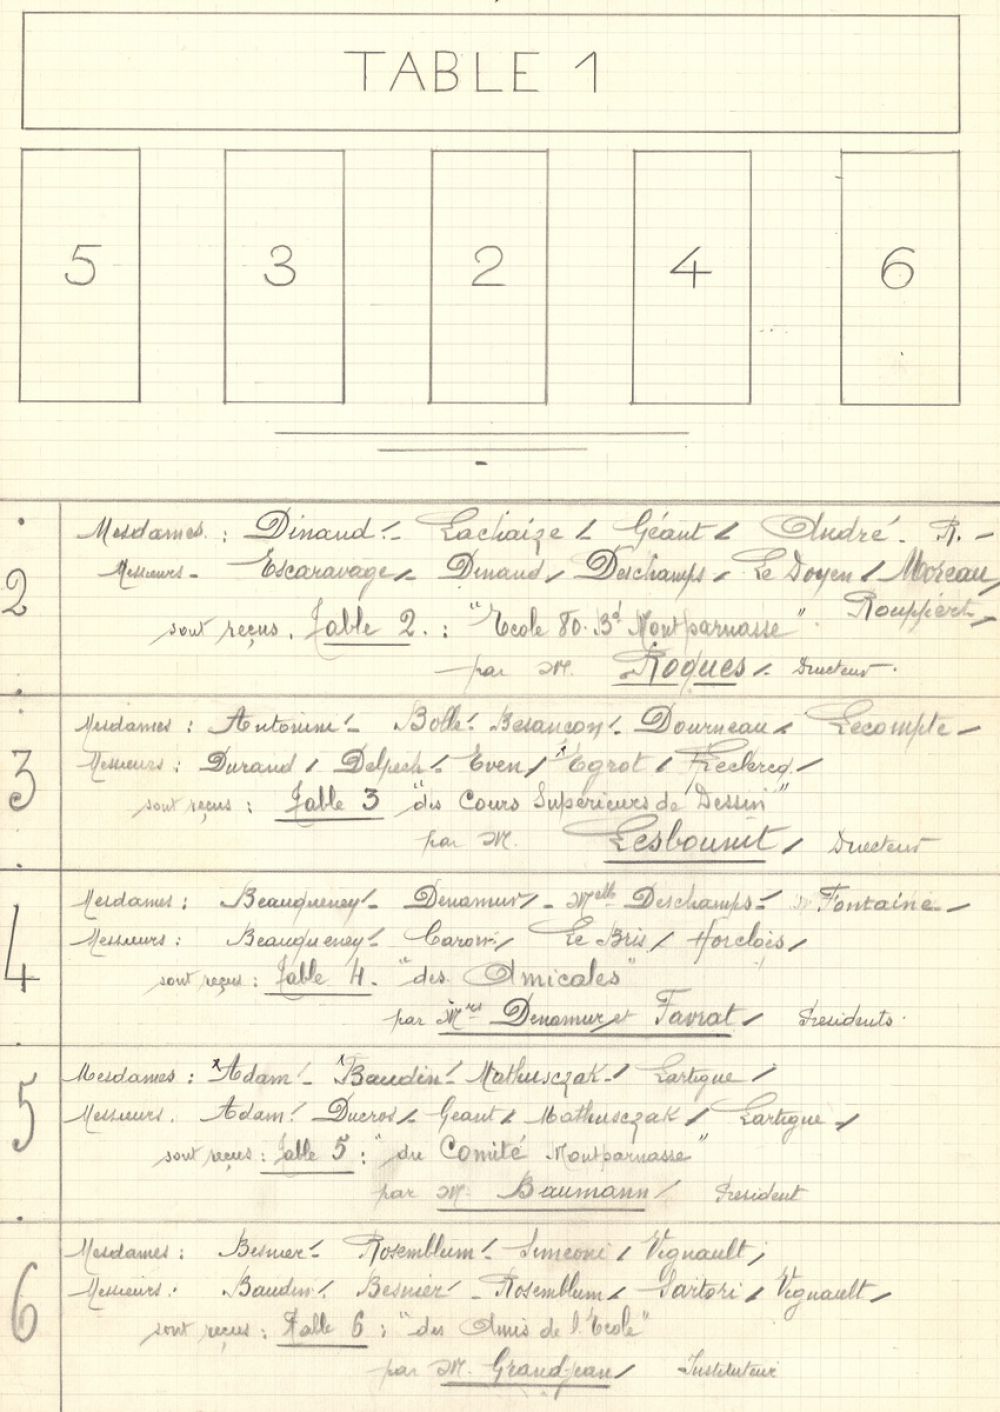 TABLE 1
5 3 2 4 6
2
Mesdames : Dinaud - Lachaize / Géant / André - R. -
Messieurs - Escaravage - Dinaud, Deschamps - Le Doyen / Moreau,
Rouppert -
sont reçus. Table 2. : "Ecole 80. Bd Montparnasse".
par M. Roques. Directeur.
3
Mesdames : Antonini - Bolle - Besançon - Dourneau - Lecompte -
Messieurs : Durand / Delpech - Even / Egrot / Leclercq /
sont reçus : Table 3 "des Cours Supérieurs de Dessin"
par M. Lesbounit / Directeur
4
Mesdames : Beauqueney - Denamur - Melle Deschamps - Fontaine -
Messieurs : Beauqueney - Caron / Le Bris / Horclois /
sont reçus : Table 4. "des Amicales"
par Mrs Denamur et Favrat / Présidents.
5
Mesdames : Adam - Baudin - Mathusczak - / Lartigue /
Messieurs. Adam. Ducros / Géant / Mathusczak / Lartigue /
sont reçus : Table 5 : "du Comité Montparnasse"
par M. Baumann / Président
6
Mesdames : Besnier - Rosemblum - Simeoni / Vignault,
Messieurs. Baudin. Besnier - Rosemblum / Sartori / Vignault /
sont reçus : Table 6 : "des Amis de l'Ecole"
par M. Grandjean / Instituteur